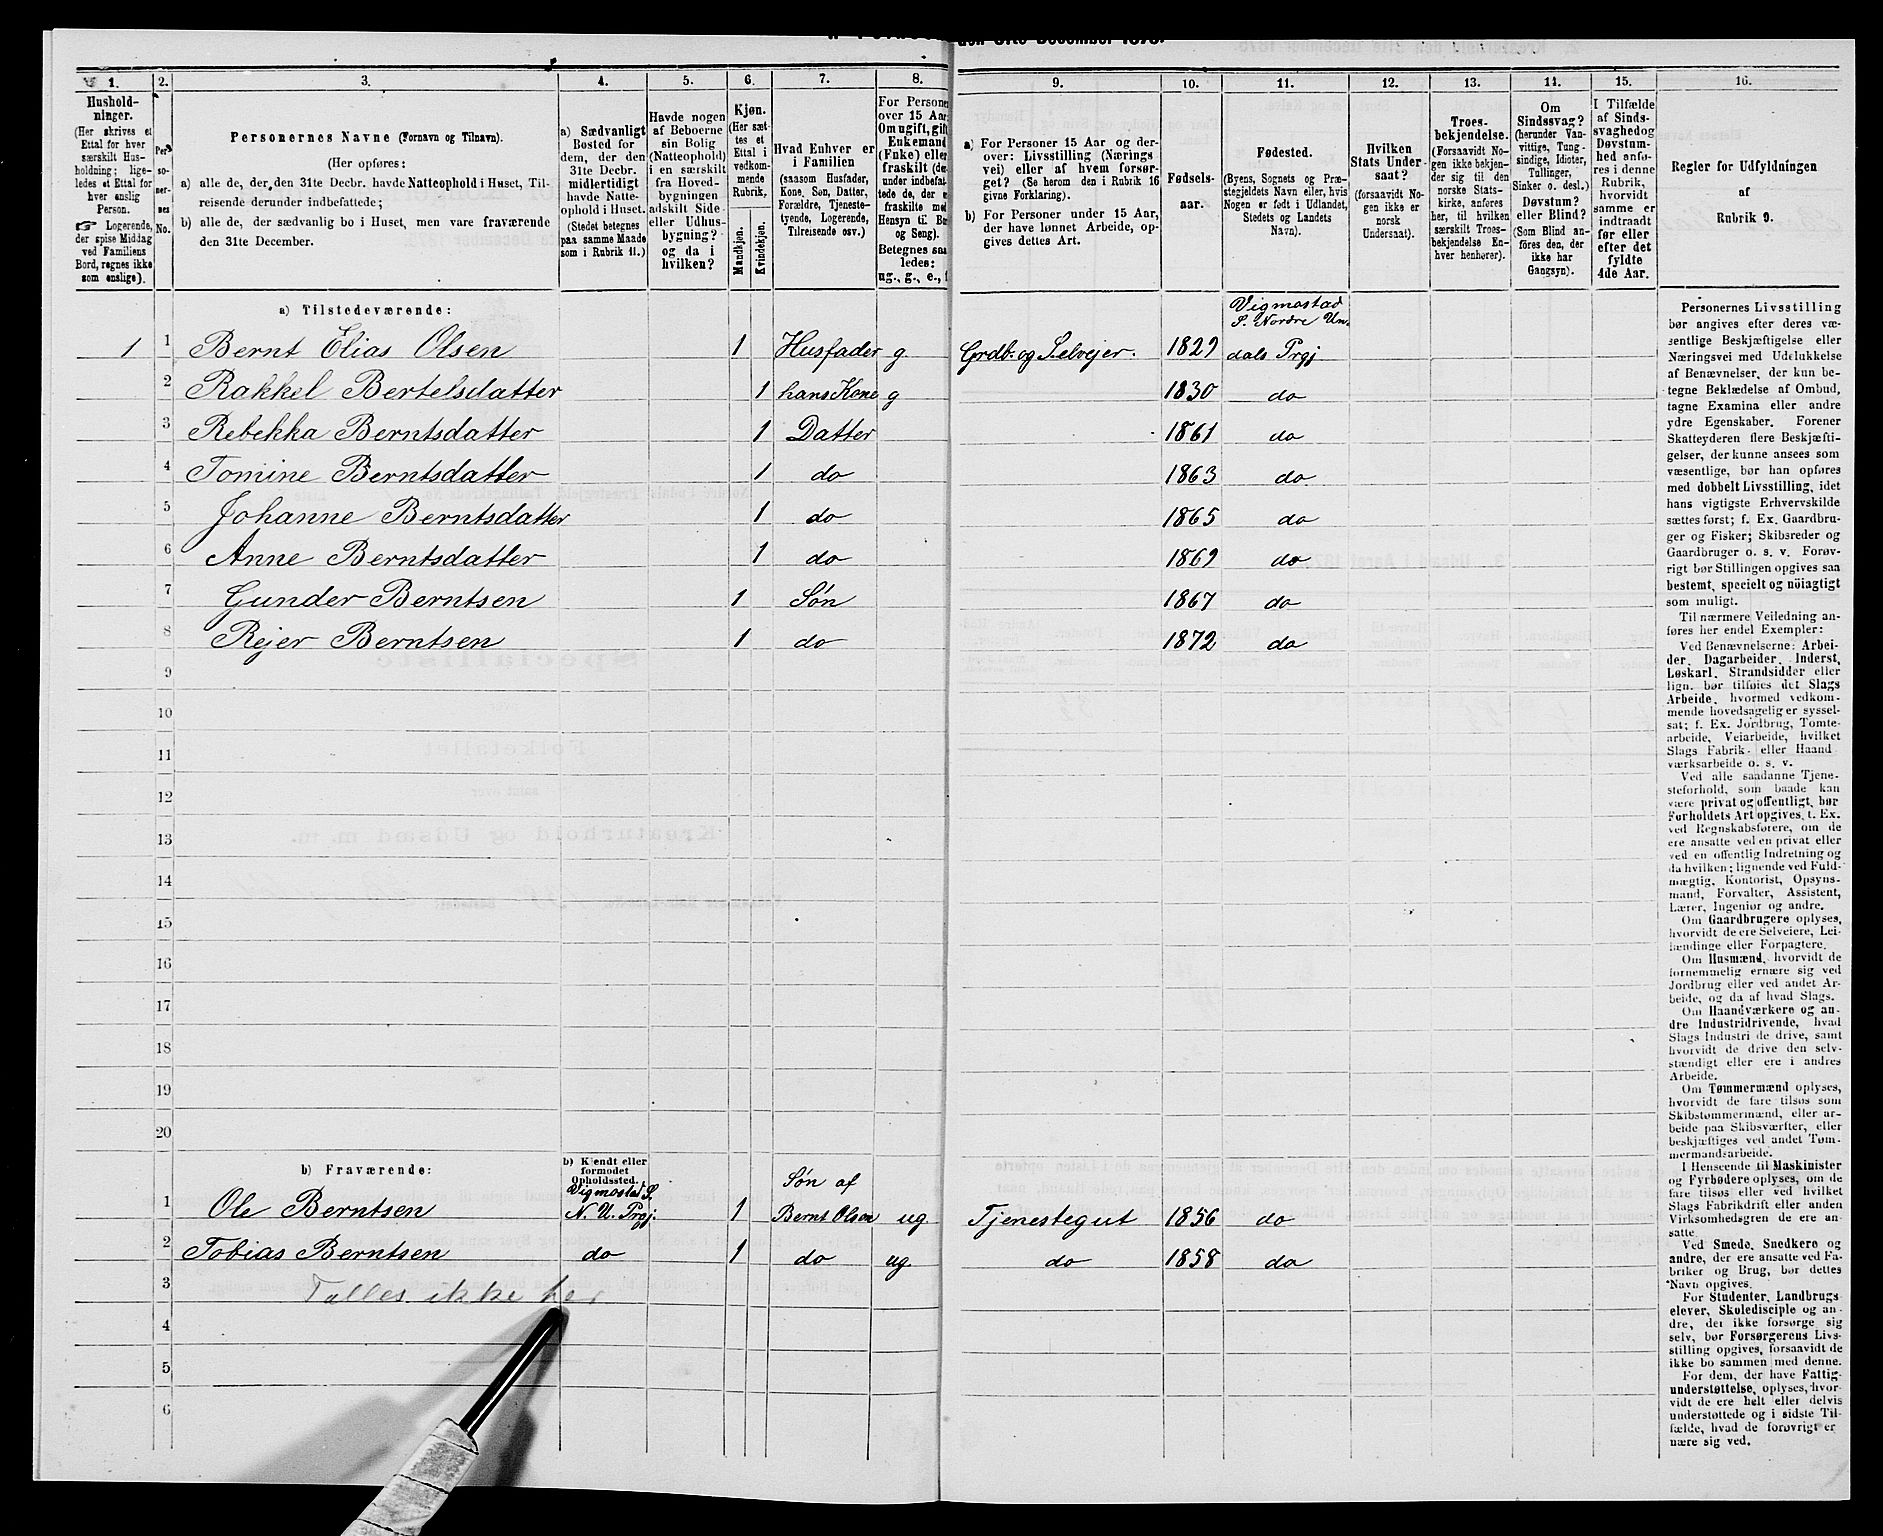 den 31te December 1875.
1. 2. 3. 4. 5. 6. 7. 8. 9. 10. 11. 12. 13. 14. 15. 16.
Hushold-
ninger.
(Her skrives et
Ettal for hver
særskilt Hus-
holdning; lige-
ledes et Ettal for
hver enslig
Person.
☞ Logerende,
der spise Middag
ved Familiens
Bord, regnes ikke
som enslige).
Per-
so-
ner-
nes
No.
Personernes Navne (Fornavn og Tilnavn).
(Her opføres:
a) alle de, der den 31te Decbr. havde Natteophold i Huset, Til-
reisende derunder indbefattede;
b) alle de, der sædvanlig bo i Huset, men vare fraværende
den 31te December.
a) Sædvanligt
Bosted for
dem, der den
31te Decbr.
midlertidigt
havde Natte-
ophold i Huset.
(Stedet betegnes
paa samme Maade
som i Rubrik 11.)
Havde nogen
af Beboerne
sin Bolig
(Natteophold)
i en særskilt
fra Hoved-
bygningen
adskilt Side-
eller Udhus-
bygning?
og da i
hvilken?
Kjøn.
(Her sæt-
tes et
Ettal i
vedkom-
mende
Rubrik.)
Mandkjøn.
Kvindekjøn.
Hvad Enhver er
i Familien
(saasom Husfader,
Kone, Søn, Datter,
Forældre, Tjeneste-
tyende, Logerende,
Tilreisende osv.)
For Persone
over 15 Aar
Om ugift, gift
Enkemand
(Enke) eller
fraskilt (de
under indbefat
tede de, der e
fraskilte med
Hensyn til Bo
og Seng).
Betegnes saa
ledes:
ug., g., e., f
a) For Personer 15 Aar og der-
over: Livsstilling (Nærings
vei) eller af hvem forsør-
get? (Se herom den i Rubrik 16
givne Forklaring).
b) For Personer under 15 Aar,
der have lønnet Arbeide, op-
gives dettes Art.
Fødsels-
aar.
Fødested.
(Byens, Sognets og Præ-
stegjeldets Navn eller, hvis
Nogen er født i Udlandet,
Stedets og Landets
Navn).
Hvilken
Stats Under-
saat?
(forsaavidt No-
gen ikke er
norsk
Undersaat).
Troes-
bekjendelse.
(Forsaavidt No-
gen ikke bekjen-
der sig til den
norske Stats-
kirke, anføres
her, til hvilken
særskilt Troes-
bekjendelse En-
hver henhører).
Om
Sindssvag?
(herunder Van-
vittige, Tung-
sindige, Idioter,
Tullinger,
Sinker o. desl.)
Døvstum?
eller Blind?
(Som Blind an-
føres den, der
ikke har
Gangsyn).
I Tilfælde
af Sinds-
svaghed og
Døvstum-
hed anfø-
res i denne
Rubrik,
hvorvidt
samme er
indtraadt
før eller
efter det
fyldte
4de Aar.
Regler for Udfyldningen
af
Rubrik 9.
a) Tilstedeværende:
Vigmostad
S. Nordre Un-
1 1 Bernt Elias Olsen 1 Husfader g Grdb. og Selvejer. 1829 dals Prgj
2 Rakkel Bertelsdatter 1 hans Kone g 1830 do
3 Rebekka Berntsdatter 1 Datter 1861 do
4 Tomine Berntsdatter 1 do 1863 do
5 Johanne Berntsdatter 1 do 1865 do
6 Anne Berntsdatter 1 do 1869 do
7 Gunder Berntsen 1 Søn 1867 do
8 Rejer Berntsen 1 do 1872 do
9
10
11
12
13
14
15
16
17
18
19
20
b) Fraværende:
b) Kjendt eller
formodet
Opholdssted.
Vigmostad S. Søn af
1 Ole Berntsen N. U. Prgj. 1 Bernt Olsen ug. Tjenestegut 1856 do
2 Tobias Berntsen do 1 do ug. do 1858 do
3 Talles ikke her
4
5
6
Personernes Livsstilling
bør angives efter deres væ-
sentlige Beskjæftigelse eller
Næringsvei med Udelukkelse
af Benævnelser, der kun be-
tegne Beklædelse af Ombud,
tagne Examina eller andre
ydre Egenskaber. Forener
Skatteyderen flere Beskjæfti-
gelser, der kunne ansees som
væsentlige, bør han opføres
med dobbelt Livsstilling, idet
hans vigtigste Erhvervskilde
sættes først; f. Ex. Gaardbru-
ger og Fisker; Skibsreder og
Gaardbruger o. s. v. Forøv-
rigt bør Stillingen opgives saa
bestemt, specielt og nöiagtigt
som muligt.
Til nærmere Veiledning an-
føres her endel Exempler:
Ved Benævnelserne: Arbei-
der, Dagarbeider, Inderst,
Løskarl, Strandsidder eller
lign. bør tilføies det Slags
Arbeide, hvormed vedkom-
mende hovedsagelig er syssel-
sat; f. Ex. Jordbrug, Tomte-
arbeide, Veiarbeide, hvilket
Slags Fabrik- eller Haand
værksarbeide o. s. v.
Ved alle saadanne Tjene-
steforhold, som baade kan
være privat og offentligt, bør
Forholdets Art opgives, t. Ex.
ved Regnskabsførere, om de
ere ansatte ved en privat eller
ved en offentlig Indretning og
da hvilken; lignende ved Fuld-
mægtig, Kontorist, Opsyns-
mand, Forvalter, Assistent,
Lærer, Ingeniør og andre.
Om Gaardbrugere oplyses,
hvorvidt de ere Selveiere, Lei-
lændinge eller Forpagtere.
Om Husmænd, hvorvidt de
fornemmelig ernære sig ved
Jordbrug eller ved andet Ar-
beide, og da af hvad Slags.
Om Haandværkere og an-
dre Industridrivende, hvad
Slags Industri de drive, samt
hvorvidt de drive den selv-
stændigt eller ere i andres
Arbeide.
Om Tømmermænd oplyses,
hvorvidt de fare tilsøs som
Skibstømmermænd, eller ar-
beide paa Skibsværfter, eller
beskjæftiges ved andet Tøm-
mermandsarbeide.
I Henseende til Maskinister
og Fyrbødere oplyses, om de
fare tilsøs eller ved hvilket
Slags Fabrikdrift eller anden
Virksomhedsgren de ere an-
satte.
Ved Smede, Snedkere og
andre, der ere ansatte ved Fa-
briker og Brug, bør dettes
Navn opgives.
For Studenter, Landbrugs-
elever, Skoledisciple og an-
dre, der ikke forsørge sig
selv, bør Forsørgerens Livs-
stilling opgives, forsaavidt de
ikke bo sammen med denne.
For dem, der have Fattig-
understøttelse, oplyses, hvor-
vidt de ere helt eller delvis
understøttede og i sidste Til-
fælde, hvad de forøvrigt er-
nære sig ved.